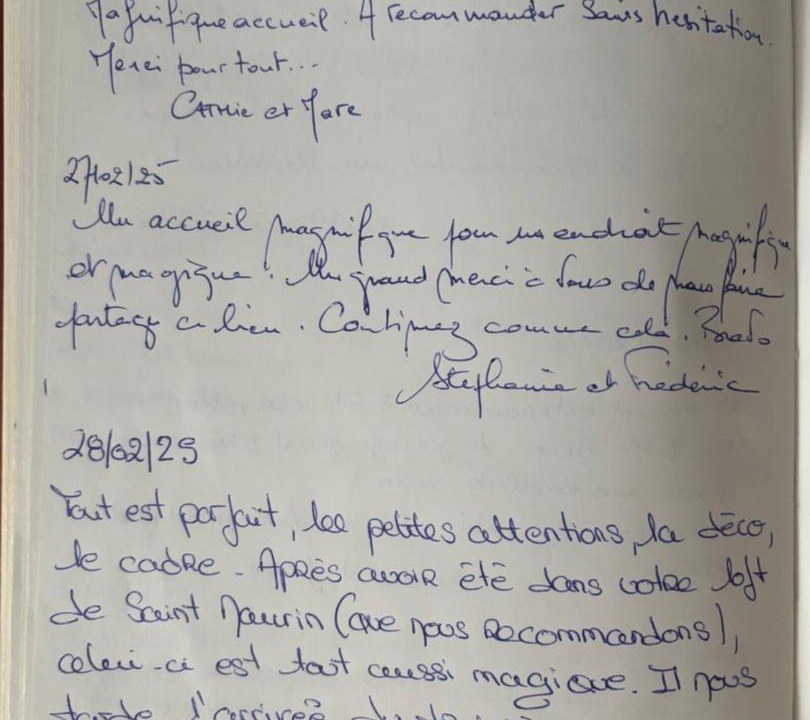 Magnifique accueil. A recommander sans hesitation.
Merci pour tout...
CATHIE et Marc
27/02/25
Un accueil magnifique pour un endroit magnifique
et magique. Un grand merci à vous de nous faire
partager ce lieu. Continuez comme cela. Bravo
Stephanie et Frédéric
28/02/25
Tout est parfait, les petites attentions, la déco,
le cadre. Après avoir été dans votre loft
de Saint Maurin (que nous recommandons),
celui-ci est tout aussi magique. Il nous
tarde l'arrivée